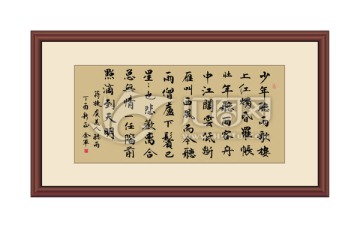 少年聽雨歌樓
上紅燭昏羅帳
壯年聽雨客舟
中江闊雲低斷
雁叫西風而今聽
雨僧廬下鬢已
星々也悲歡離合
總無情一任階前
點滴到天明
蔣捷虞美人聽雨
丁酉新正